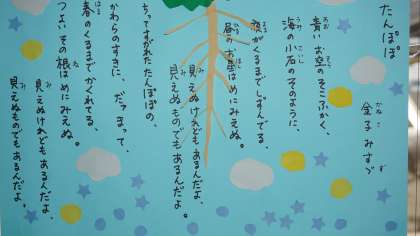 たんぽぽ
金子 みすゞ
青い お空の そこふかく、
海の小石の そのように、
夜がくるまで しずんでる、
昼のお星は めにみえぬ。
見えぬけれども あるんだよ、
見えぬものでも あるんだよ。
ちってすがれた たんぽぽの、
かわらのすきに、だァまって、
春のくるまで かくれてる、
つよい その根は めにみえぬ。
見えぬけれども あるんだよ、
見えぬものでも あるんだよ。